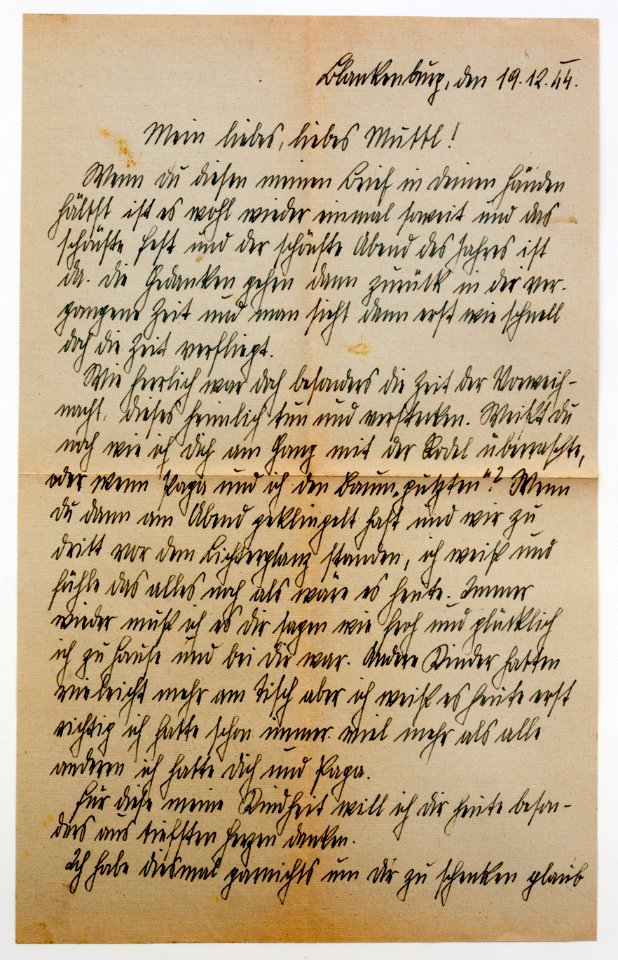 Blankenburg, den 19.12.44.
Mein liebes, liebes Muttl!
Wenn du diesen meinen Brief in deinen Händen
hältst ist es wohl wieder einmal soweit und das
schönste Fest und der schönste Abend des Jahres ist
da. Die Gedanken gehen dann zurück in der ver-
gangene Zeit und man sieht dann erst wie schnell
doch die Zeit verfliegt.
Wie herrlich war doch besonders die Zeit der Vorweih-
nacht, dieses heimlich tun und verstecken. Weißt du
noch wie ich dich am Gang mit der Rodel überraschte,
oder wenn Papa und ich den Baum „putzten“? Wenn
du dann am Abend geklingelt hast und wir zu
dritt vor dem Lichterglanz standen, ich weiß und
fühle das alles noch als wäre es heute. Immer
wieder muß ich es dir sagen wie froh und glücklich
ich zu Hause und bei dir war. Andere Kinder hatten
vieleicht mehr am Tisch aber ich weiß es heute erst
richtig ich hatte schon immer viel mehr als alle
anderen ich hatte dich und Papa.
Für diese meine Kindheit will ich dir heute beson-
ders aus tiefsten Herzen danken.
Ich habe diesmal garnichts um dir zu schenken glaub